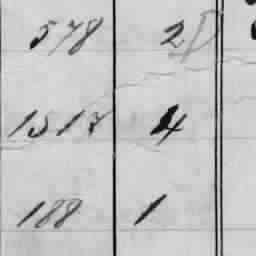 578 2
1517 4
188 1